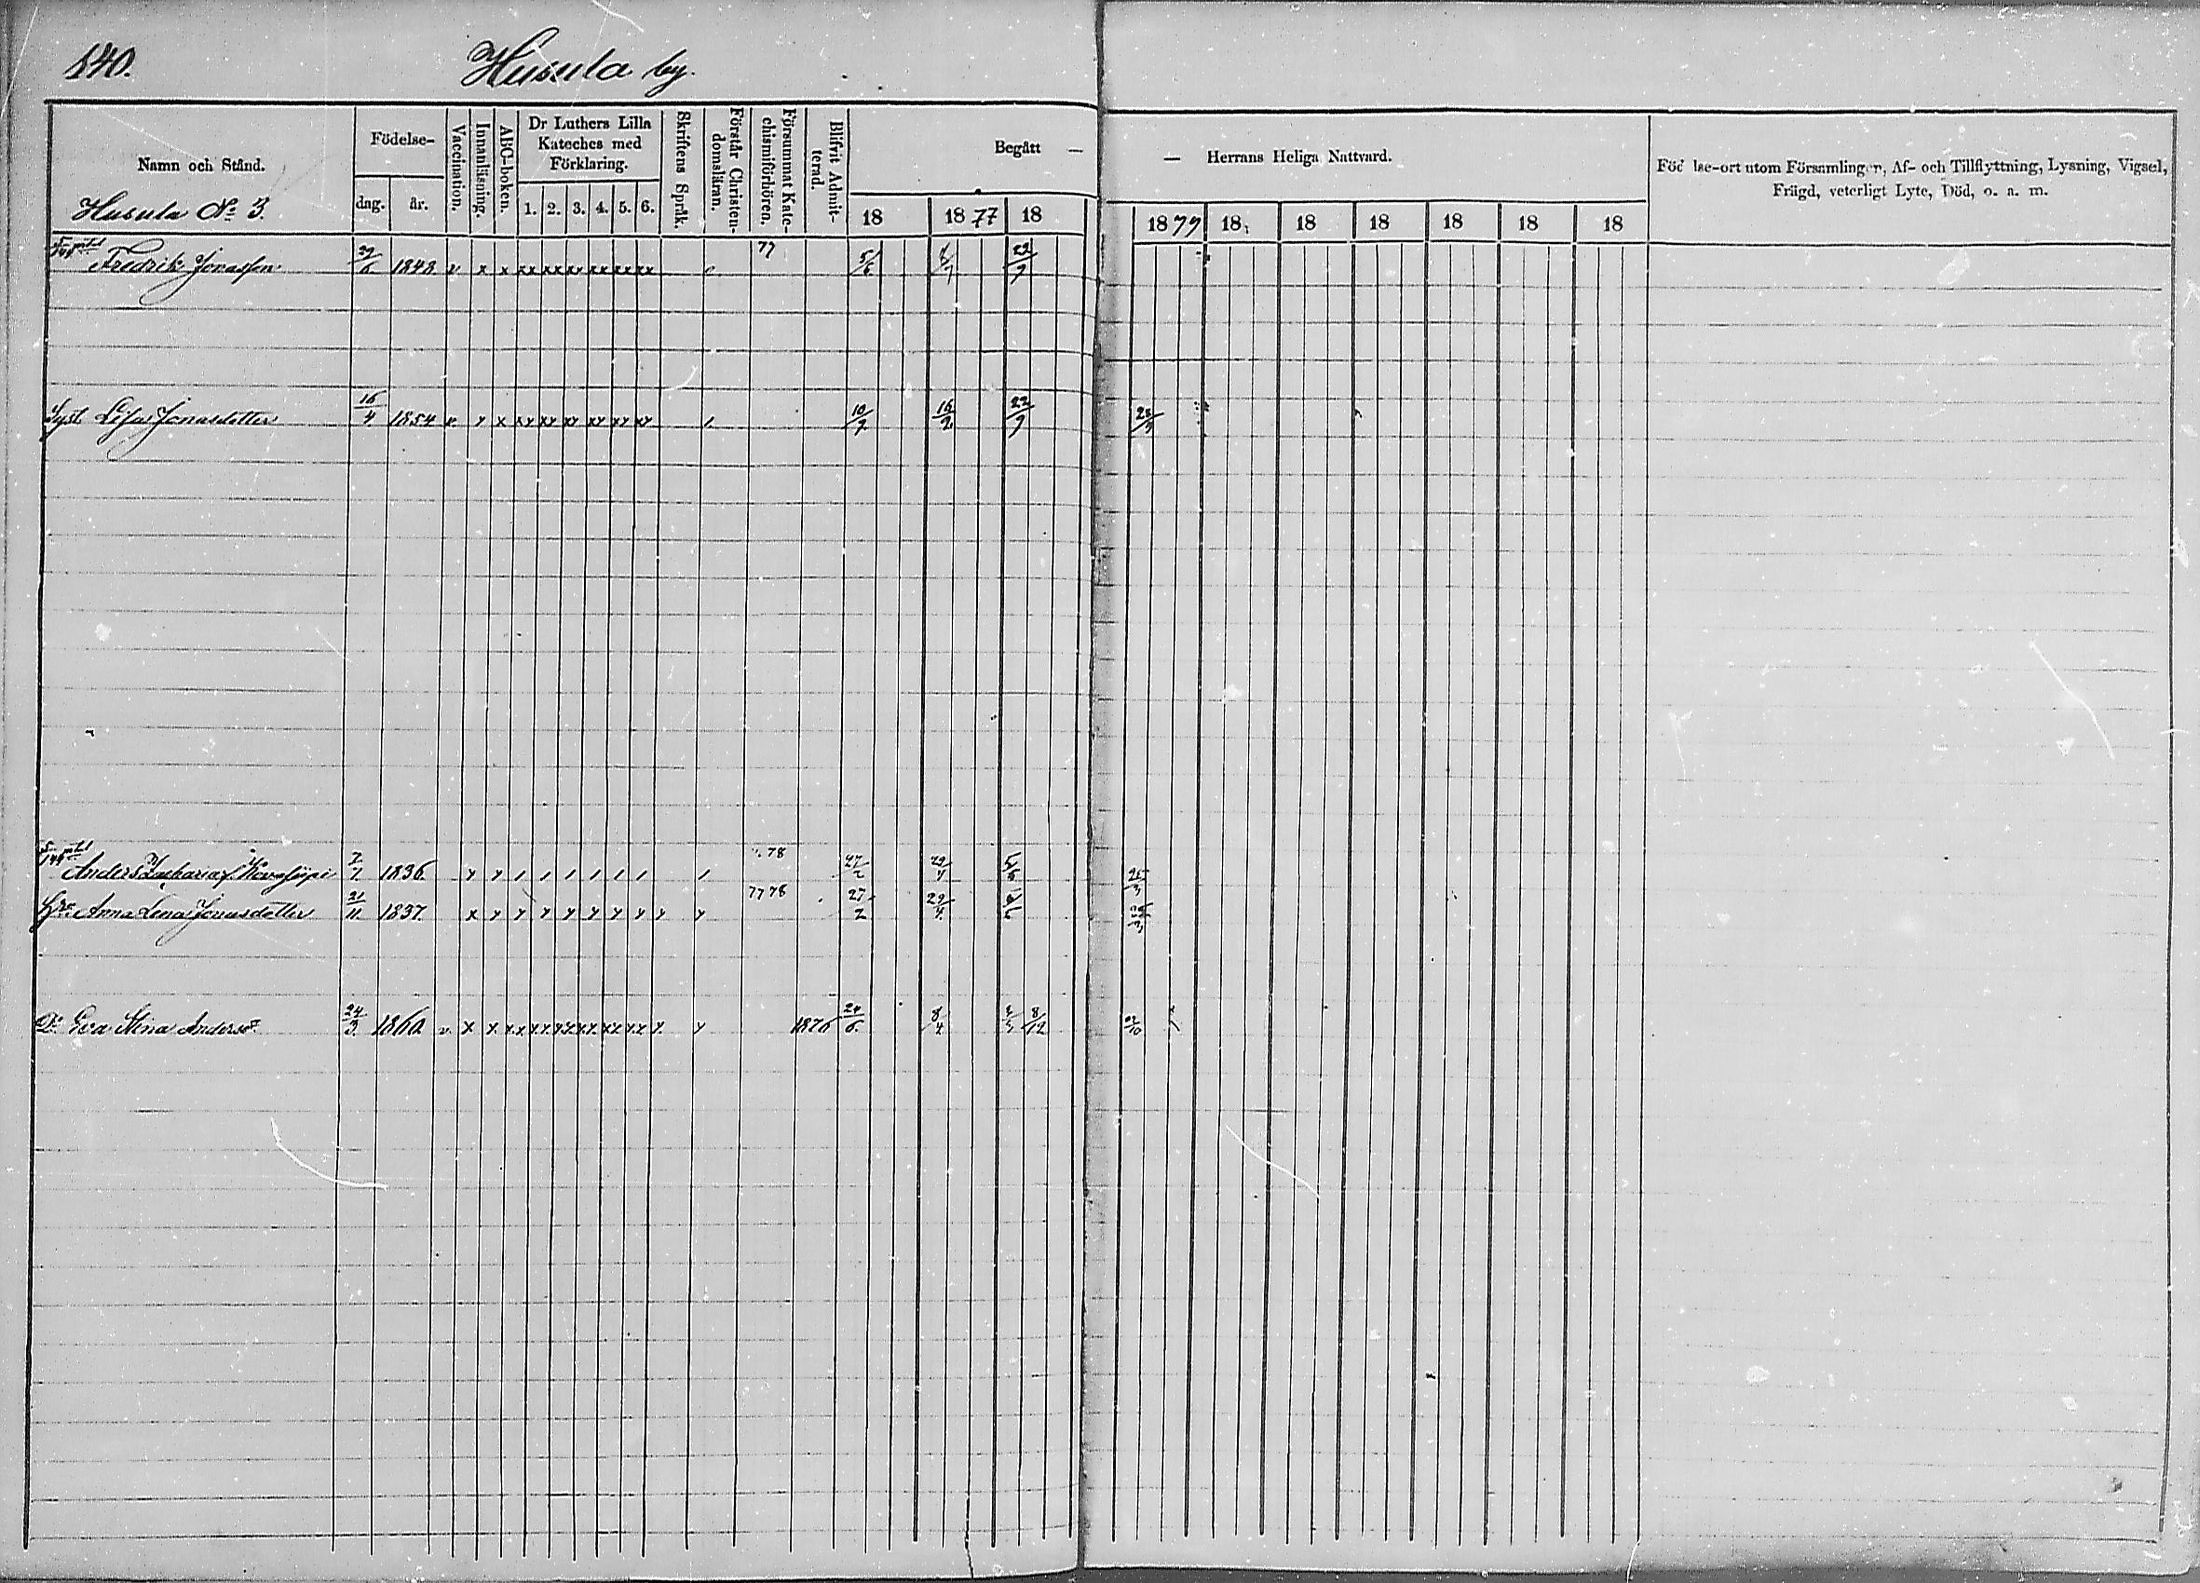 140.
Husula by.
Namn och Stånd.
Födelse-
dag. år.
Vaccination.
Innanläsning.
ABC-boken.
Dr Luthers Lilla Kateches med Förklaring.
1. 2. 3. 4. 5. 6.
Skriftens Språk.
Förstår Christendomsläran.
Försummat Katechismiförhören.
Blifvit Admitterad.
Begått — — Herrans Heliga Nattvard.
18 18 77 18 18 79 18 18 18 18 18 18
Föd lse-ort utom Församlingen, Af- och Tillflyttning, Lysning, Vigsel,
Frägd, veterligt Lyte, Död, o. a. m.
Husula No 3.
Fredrik Jonasson 1848 v x x xx xx xx xx xx xx 77 5/6 22/9
Syst. Lisa Jonasdotter 16/4 1854 v x x xx xx xx xx xx xx 10/9 16/9 22/9
Anders 7/7 1836 78 27/2 29/4 5/5
Anna Lena Jonasdotter 21/11 1837 77 78 27/2 29/4
Dr Eva Stina Andersd. 24/3 1860 v x x 1876 24/6 8/4 8/12